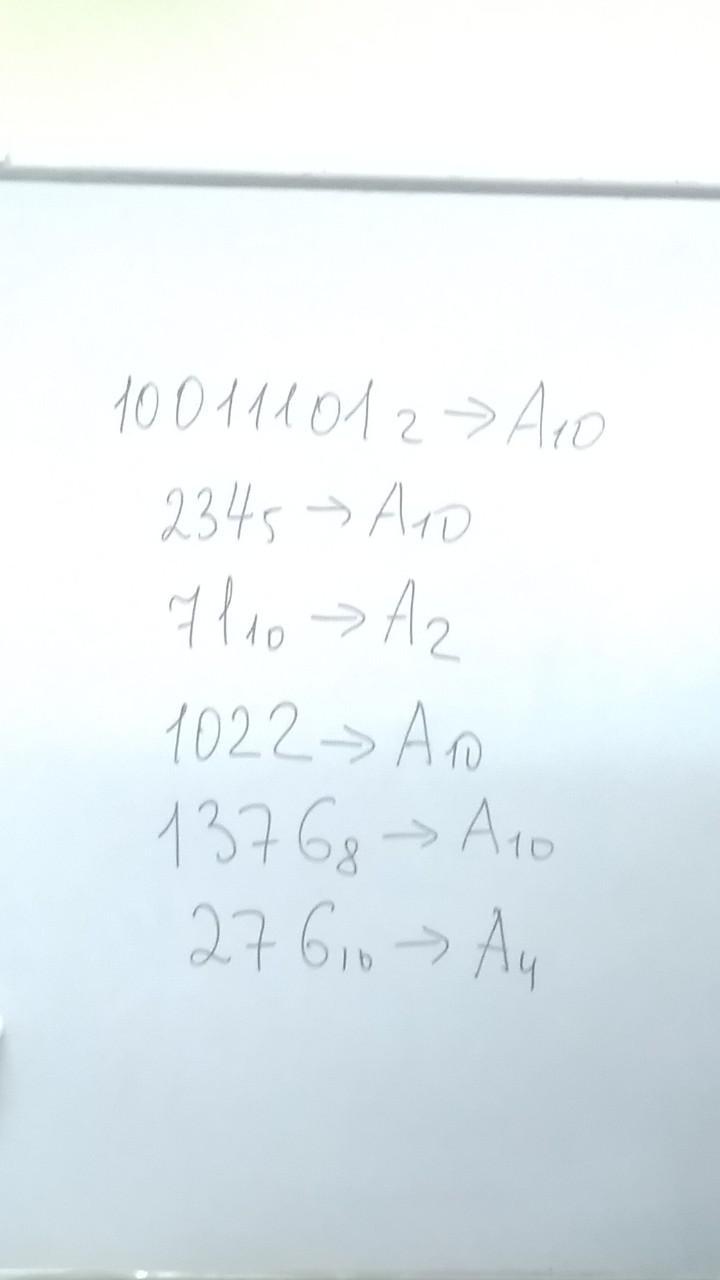 10011101₂ → A₁₀
234₅ → A₁₀
71₁₀ → A₂
1022 → A₁₀
1376₈ → A₁₀
276₁₀ → A₄